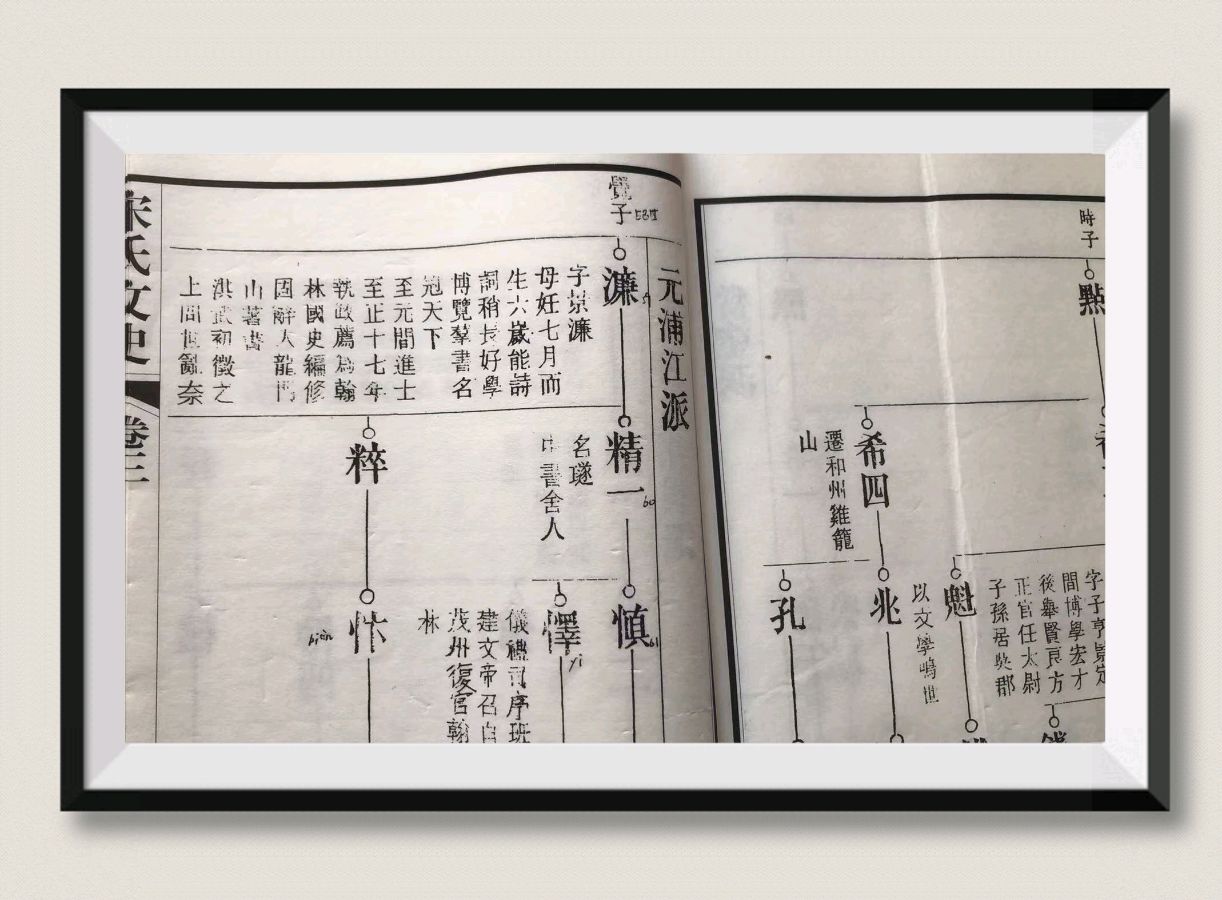 時子
點
希四
遷和州雞籠
山
字子亨景定
間博學宏才
後舉賢良方
正官任太尉
子孫居吳郡
魁
以文學鳴世
兆
孔
元浦江派
覺子
濂
字景濂
母妊七月而
生六歲能詩
詞稍長好學
博覽羣書名
冠天下
至元間進士
至正十七年
執政薦爲翰
林國史編修
固辭入龍門
山著書
洪武初徵之
上問世亂奈
精一
名璲
中書舍人
粹
慎
懌
yì
儀禮司序班
建文帝召自
茂州復官翰
林
忭
biàn
宋氏文史
卷三